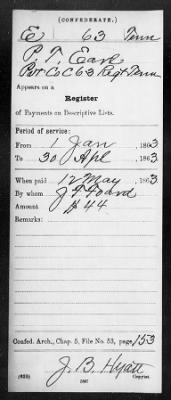 (CONFEDERATE.)
E 63 Tenn
P. T. Earl
Pvt Co C 63 Regt Tenn
Appears on a
Register
of Payments on Descriptive Lists.
Period of service:
From 1 Jan, 1863
To 30 Apl, 1863
When paid 12 May, 1863
By whom J. F. Foard
Amount $44
Remarks:
Confed. Arch., Chap. 5, File No. 53, page 153
J. B. Hyatt
(635) Copyist.